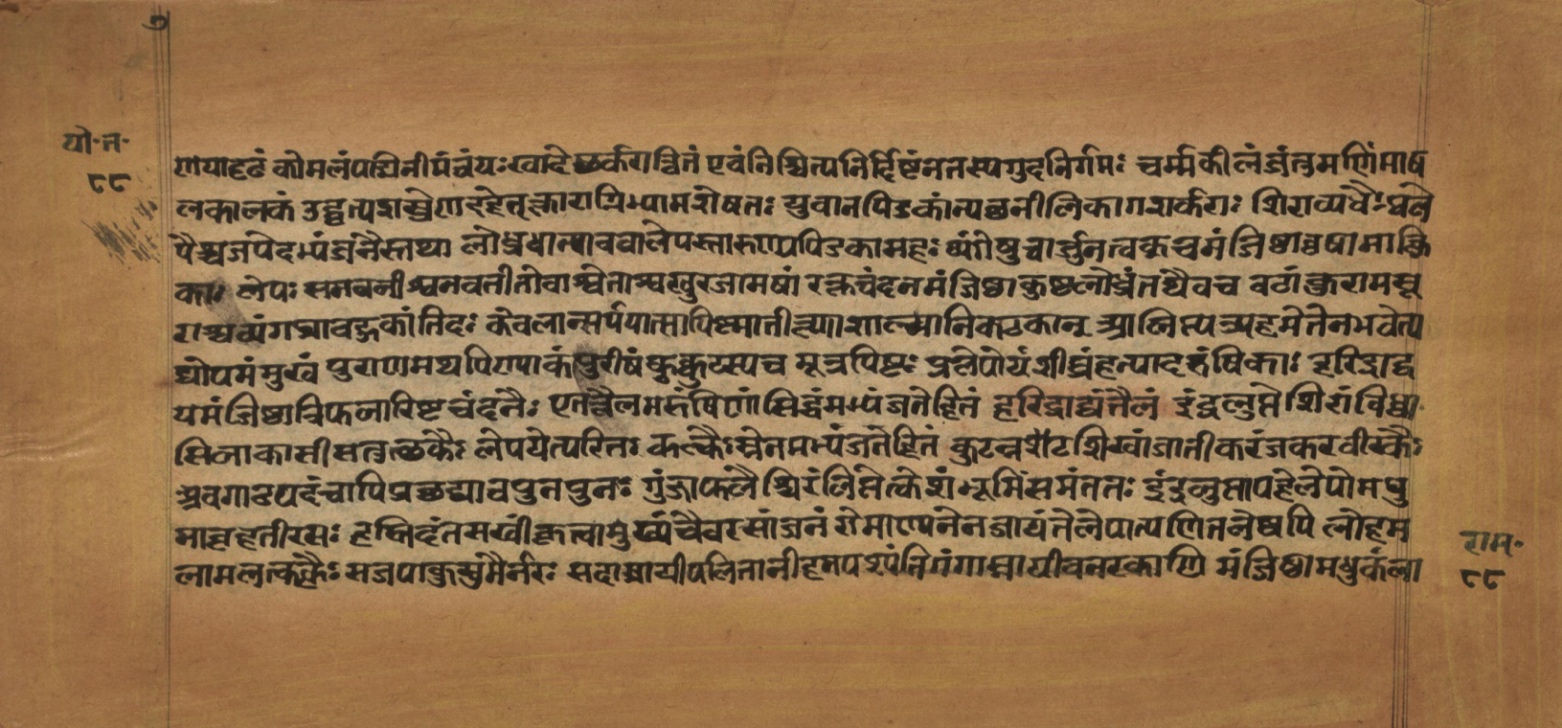 यो॰त॰
८८
णेपादृढं कोमलंपद्मिनीपत्रंयः खादेछर्करान्वितं एवंनिश्चित्यनिर्द्दिष्टंनतस्यगुदनिर्गमः चर्म्मकीलंजंतुमणिंमाष
लकालकं उद्धृत्यशस्त्रेणदहेत्क्षाराग्निभ्यामशेषतः युवानपिडकांन्यछनीलिकाशर्कराः शिराव्यधैः प्रले
पैश्चजपेदभ्यंजनैस्तथा लोध्रधान्यावचालेपस्तारुण्यपिडकामहः व्यंगेषुचार्जुनत्वक्चमंजिष्ठावृषामाक्षि
काः लेपः सनवनीश्वनवतीतोवाश्वेताश्वखुरजामषी रक्तचंदनमंजिष्ठाकुष्ठलोध्रंतथैवच वटांकुरामसू
राश्चव्यंगघ्नावक्रकांतिदः केवलान्सर्पपात्सापिष्टमातीक्ष्णाशाल्मानिकटकान् आलिप्यत्र्यहमेतेनभवेत्प
द्मोपमंमुखं पुराणमथपिण्याकंपुरीषंकुक्कुटस्यच मूत्रपिष्टः प्रलेपोयंशीघ्रंहन्यादरुंषिकाः हरिद्राद्व
यमंजिष्ठात्रिफलारिष्टचंदनैः एतत्तैलमरुंषिणांसिद्धंमभ्यंजनेहितं हरिद्राद्यंतैलं इंद्रलुप्तेशिरांविध्वा
सिलाकासीसतुत्थकैः लेपयेत्परितः कल्कैःस्तेनमभ्यंजनेहितं कुटन्नटशिखांजातीकरंजकरवीरकैः
अवगाढपदंचापिप्रछद्यावपुनपुनः गुंजाफलैश्चिरंलिंप्तेत्केशंभूमिंसमंततः इंदुलुप्तापहेलेपोमधु
माबृहतीरसः हस्तिदंतसखीकृत्वामुख्यंचैवरसांजनं रोमाण्यनेनजायंतेलेपात्पाणितलेष्वपि लोहम
लामलत्कल्कैः सजपाकुसुमैर्नरः सदास्नायीपलितानीहनपश्यंतिगंगास्नायीवनरकाणि मंजिष्ठामधुकंला
राम॰
८८